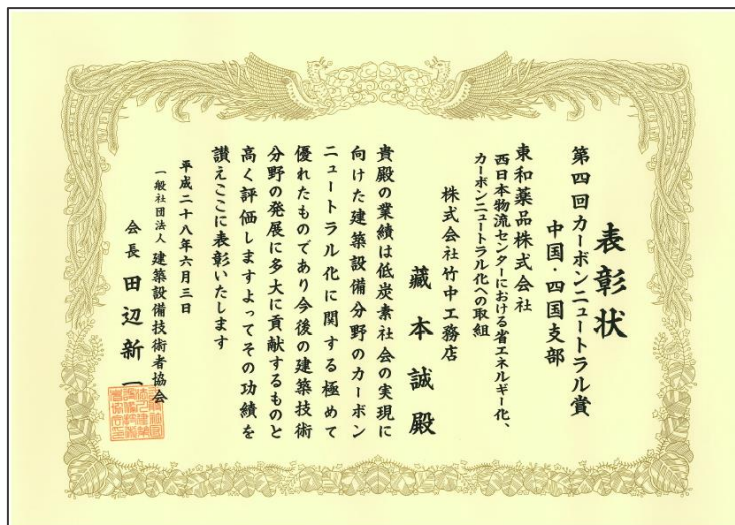 表彰状
第四回カーボンニュートラル賞
中国・四国支部
東和薬品株式会社
西日本物流センターにおける省エネルギー化、
カーボンニュートラル化への取組
株式会社竹中工務店
藏本誠殿
貴殿の業績は低炭素社会の実現に
向けた建築設備分野のカーボン
ニュートラル化に関する極めて
優れたものであり今後の建築技術
分野の発展に多大に貢献するものと
高く評価しますよってその功績を
讃えここに表彰いたします
平成二十八年六月三日
一般社団法人 建築設備技術者協会
会長 田辺新一